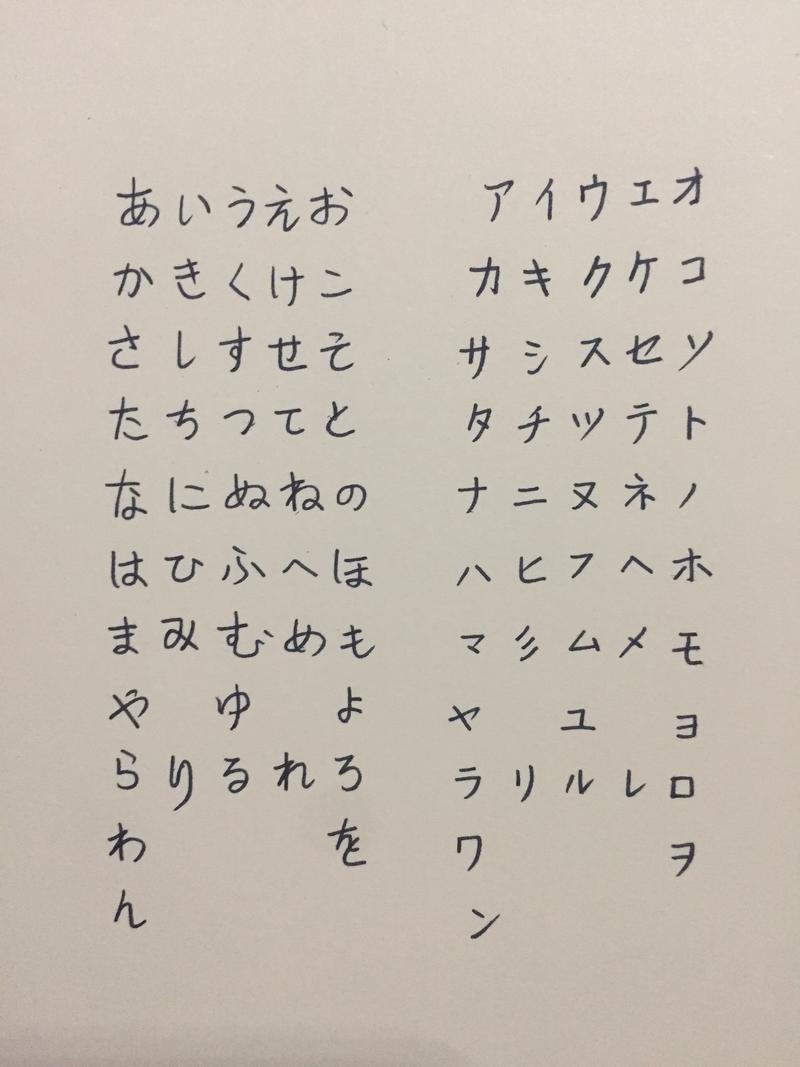 あいうえお アイウエオ
かきくけこ カキクケコ
さしすせそ サシスセソ
たちつてと タチツテト
なにぬねの ナニヌネノ
はひふへほ ハヒフヘホ
まみむめも マミムメモ
や ゆ よ ヤ ユ ヨ
らりるれろ ラリルレロ
わ を ワ ヲ
ん ン